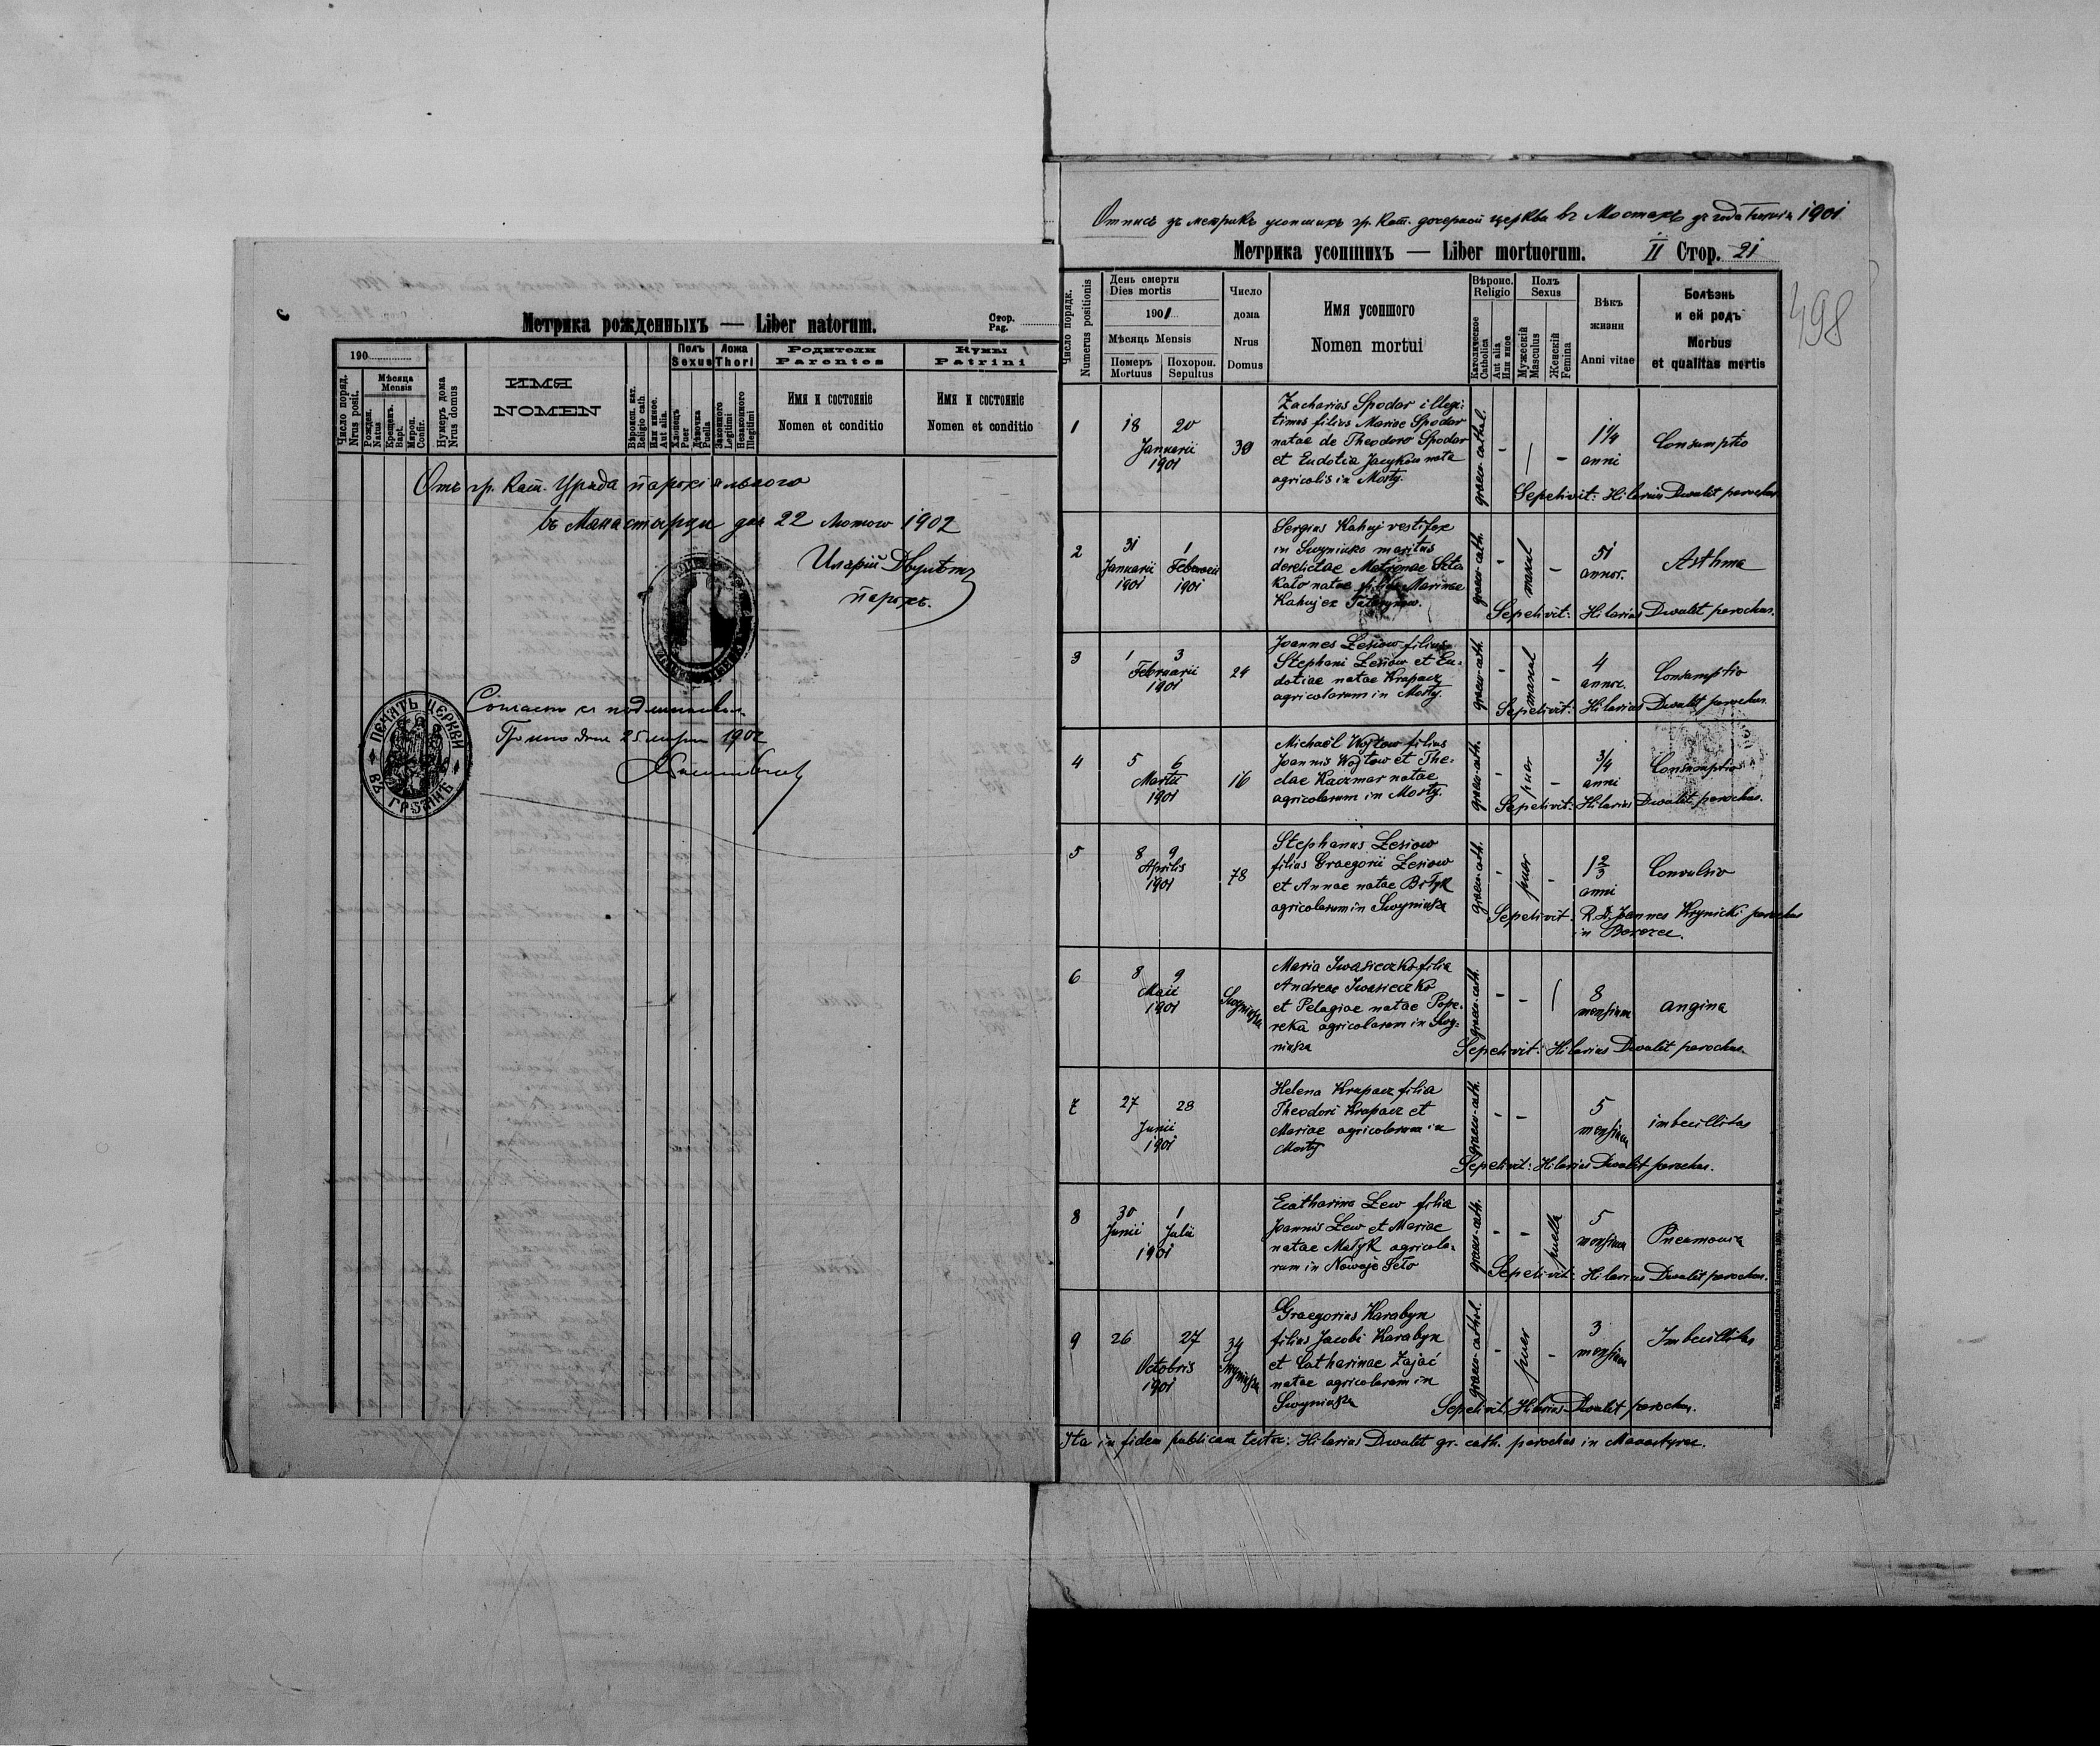 Метрика рожденныхъ — Liber natorum.
Стор.
Pag.
190
Число поряд.
Nrus posit.
Мѣсяца
Mensis
Рожден.
Natus
Крещенъ.
Bapt.
Миров.
Confir.
Нумеръ дома
Nrus domus
ИМЯ
NOMEN
Вѣроисп. кат.
Religio cath.
Или инное.
Aut alia.
Полъ
Sexus
Хлопецъ
Puer
Дѣвочка
Puella
Ложа
Thori
Законного
Legitimi
Незаконного
Illegitimi
Родители
Parentes
Имя и состояніе
Nomen et conditio
Кумы
Patrini
Имя и состояніе
Nomen et conditio
Отъ гр. Кат. Уряда парохіяльного
въ Манастирци дня 22 Лютого 1902
Иларій Двулѣтъ
парохъ.
1902
ПЕЧАТЬ ЦЕРКВИ
ВЪ
498
Отпись зъ метрикъ усопшихъ гр. Кат. дочерной церкви въ Мостахъ зъ года 1901
Метрика усопшихъ — Liber mortuorum. II Стор. 21
Число порядк.
Numerus positionis
День смерти
Dies mortis
1901
Мѣсяць Mensis
Померъ
Mortuus
Похорон.
Sepultus
Число
дома
Nrus
Domus
Имя усопшого
Nomen mortui
Вѣроис.
Religio
Католическое
Catholica
Aut alia
Или иное
Полъ
Sexus
Мужескій
Masculus
Женскій
Femina
Вѣкъ
жизни
Anni vitae
Болѣзнь
и ей родъ
Morbus
et qualitas mortis
1
18 20
Januarii
1901
39
Zacharias Spodar illegi:
timus filius Mariae Spodar
natae de Theodoro Spodar
et Eudotia Jacyków nata
agricolis in Mosty.
graeco-cathol.
1 1/4
anni
Consumptio
Sepelivit: Hilarius Dwulit parochus
2
31 1
Januarii Februarii
1901 1901
Sergius Kahuj vestifex
in Swyniuko maritus
derelictae Matronae
natae filius Marinae
Kahuj ex
graeco-cath.
mascul
51
annor.
Asthma
Sepelivit: Hilarius Dwulit parochus.
3
1 3
Februarii
1901
24
Joannes Łesiow filius
Stephani Łesiow et Eu-
dotiae natae Krupacz
agricolarum in Mosty.
graeco-cath.
mascul
4
annor.
Consumptio
Sepelivit: Hilarius Dwulit parochus.
4
5 6
Martii
1901
16
Michaël Wojtow filius
Joannis Wojtow et The-
clae Kaczmar natae
agricolarum in Mosty.
graeco-cath.
puer
3/4
anni
Consumptio
Sepelivit: Hilarius Dwulit parochus.
5
8 9
Aprilis
1901
78
Stephanus Łesiow
filius Graegorii Łesiow
et Annae natae Bełyk
agricolarum in Swyniusza
graeco-cath.
puer
1 2/3
anni
Convulsio
Sepelivit: R. D. Joannes Krynicki parochus
in
6
8 9
Maii
1901
Swyniusza
Maria Iwasieczko filia
Andreae Iwasieczko
et Pelagiae natae Pope-
reka agricolarum in Swy-
niusza
graeco-cath.
8
mensium
angina
Sepelivit: Hilarius Dwulit parochus.
7
27 28
Junii
1901
Helena Krupacz filia
Theodori Krupacz et
Mariae agricolarum in
Mosty
graeco-cath.
5
mensium
imbecillitas
Sepelivit: Hilarius Dwulit parochus.
8
30 1
Junii Julii
1901
Ecatharina Łew filia
Joannis Łew et Mariae
natae Małyk agricola-
rum in Nowoje Seło
graeco-cath.
puella
5
mensium
Pneumonia
Sepelivit: Hilarius Dwulit parochus.
9
26 27
Octobris
1901
34
Swyniusza
Graegorius Karabyn
filius Jacobi Karabyn
et Catharinae Zając
natae agricolarum in
Swyniusza
graeco-cathol.
puer
3
mensium
Imbecillitas
Sepelivit: Hilarius Dwulit parochus.
Ita in fidem publicam testor: Hilarius Dwulit gr. cath. parochus in Manastyrec.